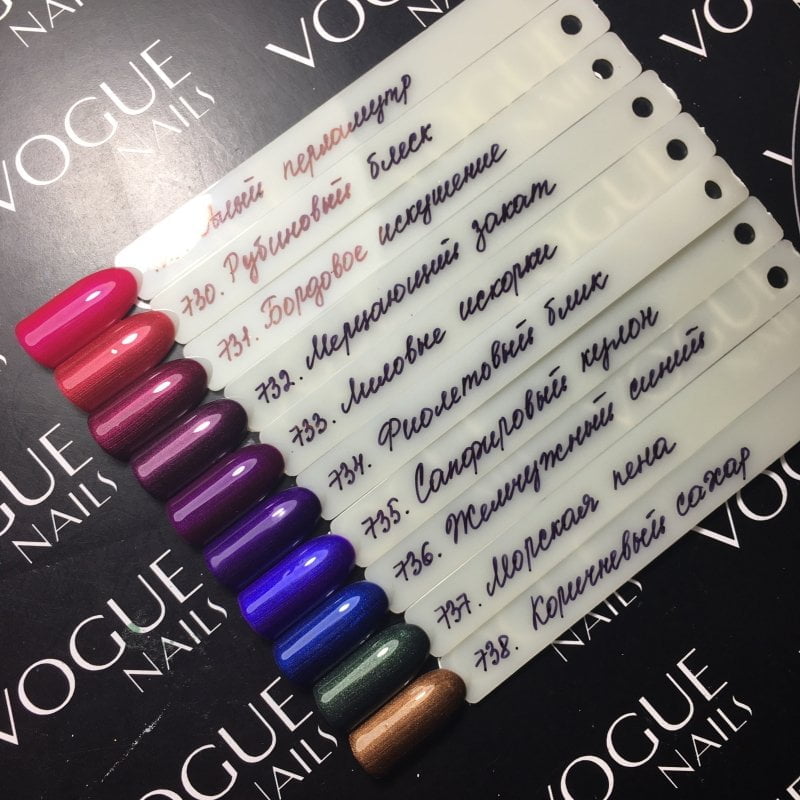 VOGUE
NAILS
VOGUE
NAILS
VOGUE
NAILS
VOGUE
NAILS
Алый перламутр
730. Рубиновый блеск
731. Бордовое искушение
732. Мерцающий закат
733. Лиловые искорки
734. Фиолетовый блик
735. Сапфировый кулон
736. Жемчужный синий
737. Морская пена
738. Коричневый сахар
VOGUE
NAILS
VOGUE
NAILS
VOGUE
NAILS
VOGUE
NAILS